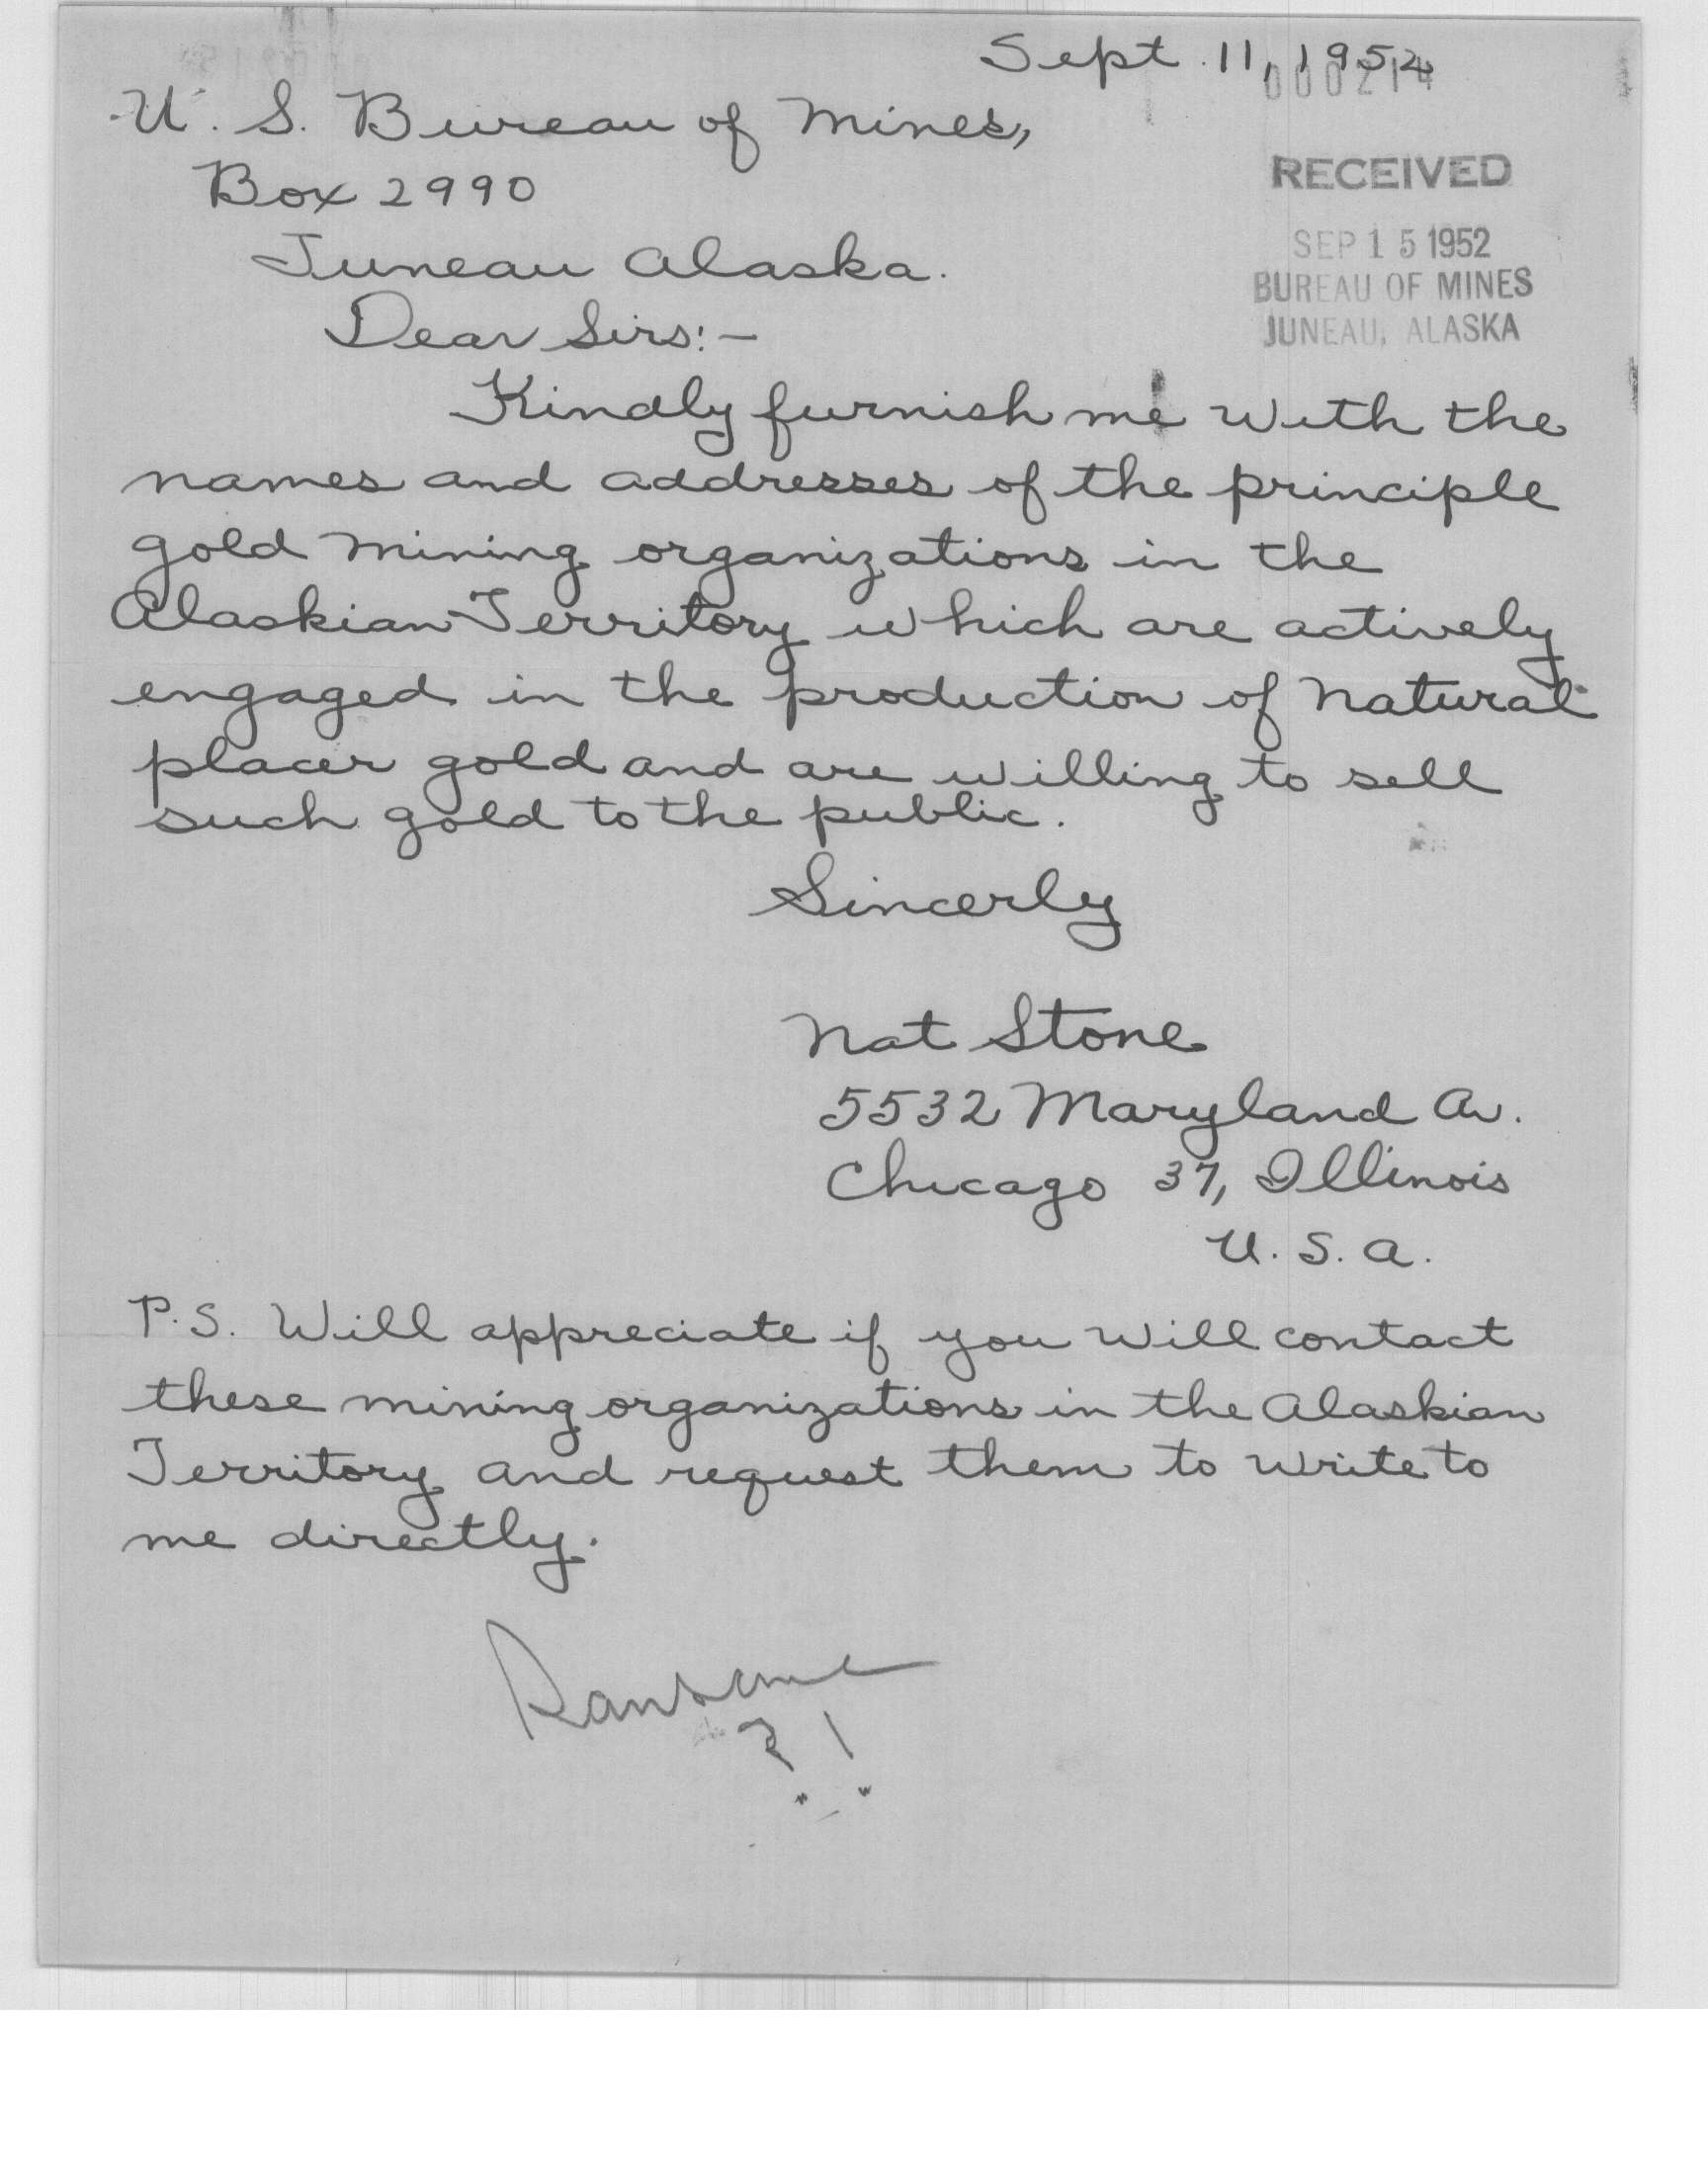 Sept. 11, 1952
000214
U. S. Bureau of Mines,
Box 2990
Juneau Alaska.
RECEIVED
SEP 15 1952
BUREAU OF MINES
JUNEAU, ALASKA
Dear Sirs:-
Kindly furnish me with the
names and addresses of the principle
gold mining organizations in the
Alaskian Territory which are actively
engaged in the production of natural
placer gold and are willing to sell
such gold to the public.
Sincerly
Nat Stone
5532 Maryland Av.
Chicago 37, Illinois
U. S. A.
P.S. Will appreciate if you will contact
these mining organizations in the Alaskian
Territory and request them to write to
me directly.
Ransome
? !